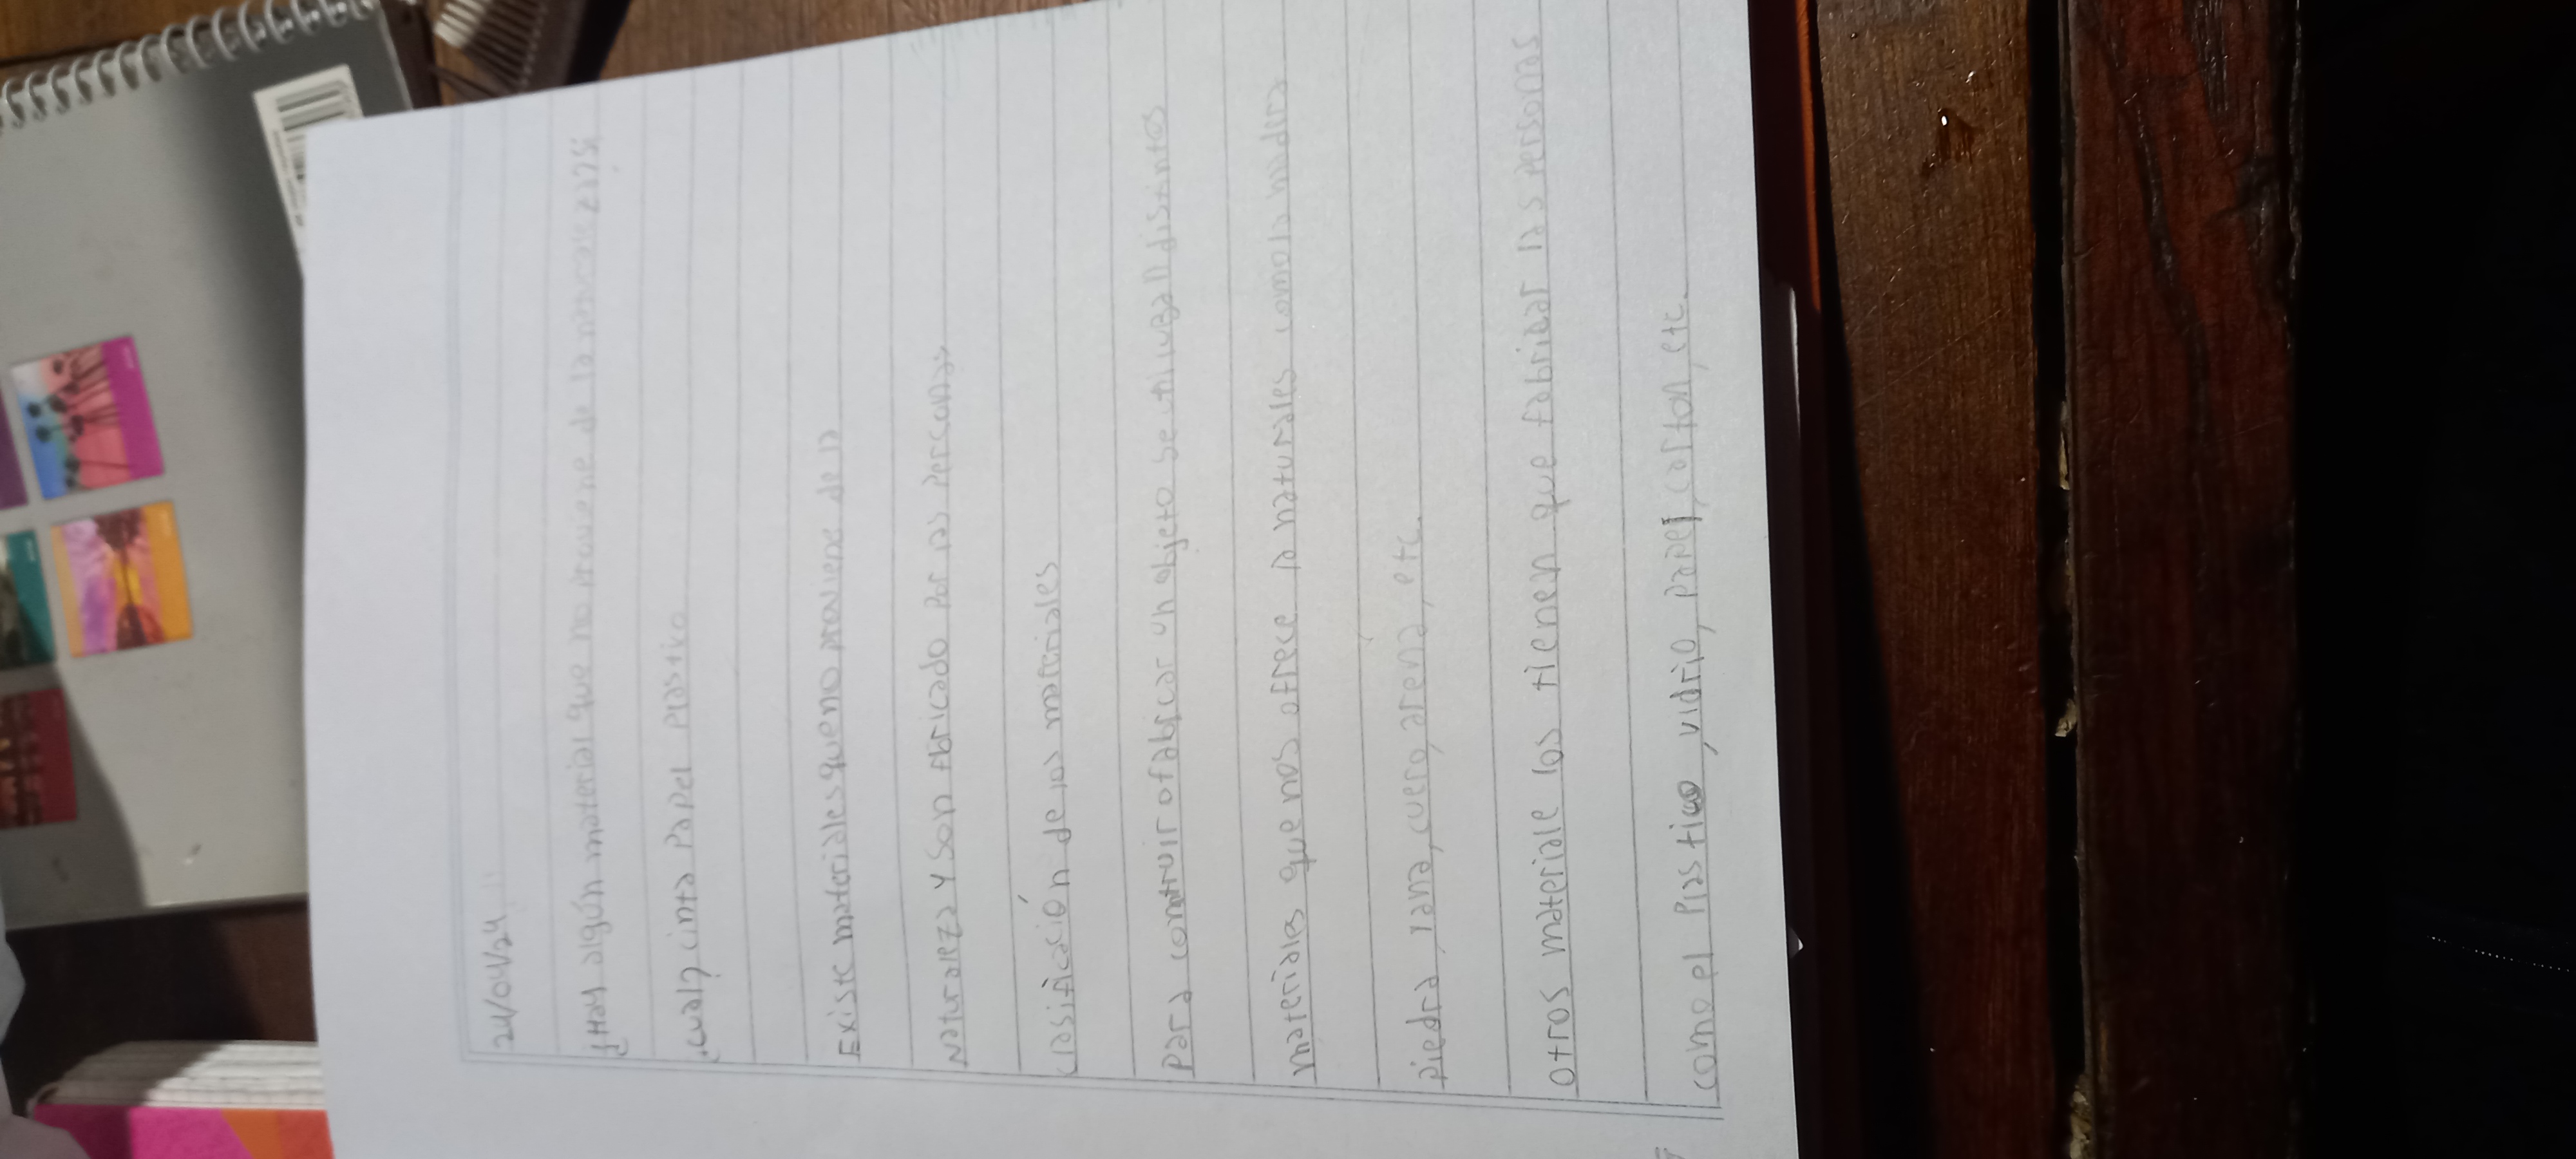 24/04/24
¿Hay algún material que no proviene de la naturaleza?
¿cual? cinta papel plastico
Existe materiales que no proviene de la
naturaleza y son fabricado por las personas
clasificasión de los materiales
para contruir o fabricar un objeto se utilizan distintos
materiales que nos ofrece la naturales como la madera
piedra, lana, cuero, arena, etc.
otros materiale los tienen que fabricar las personas
como el plastico, vidrio, papel, carton, etc.